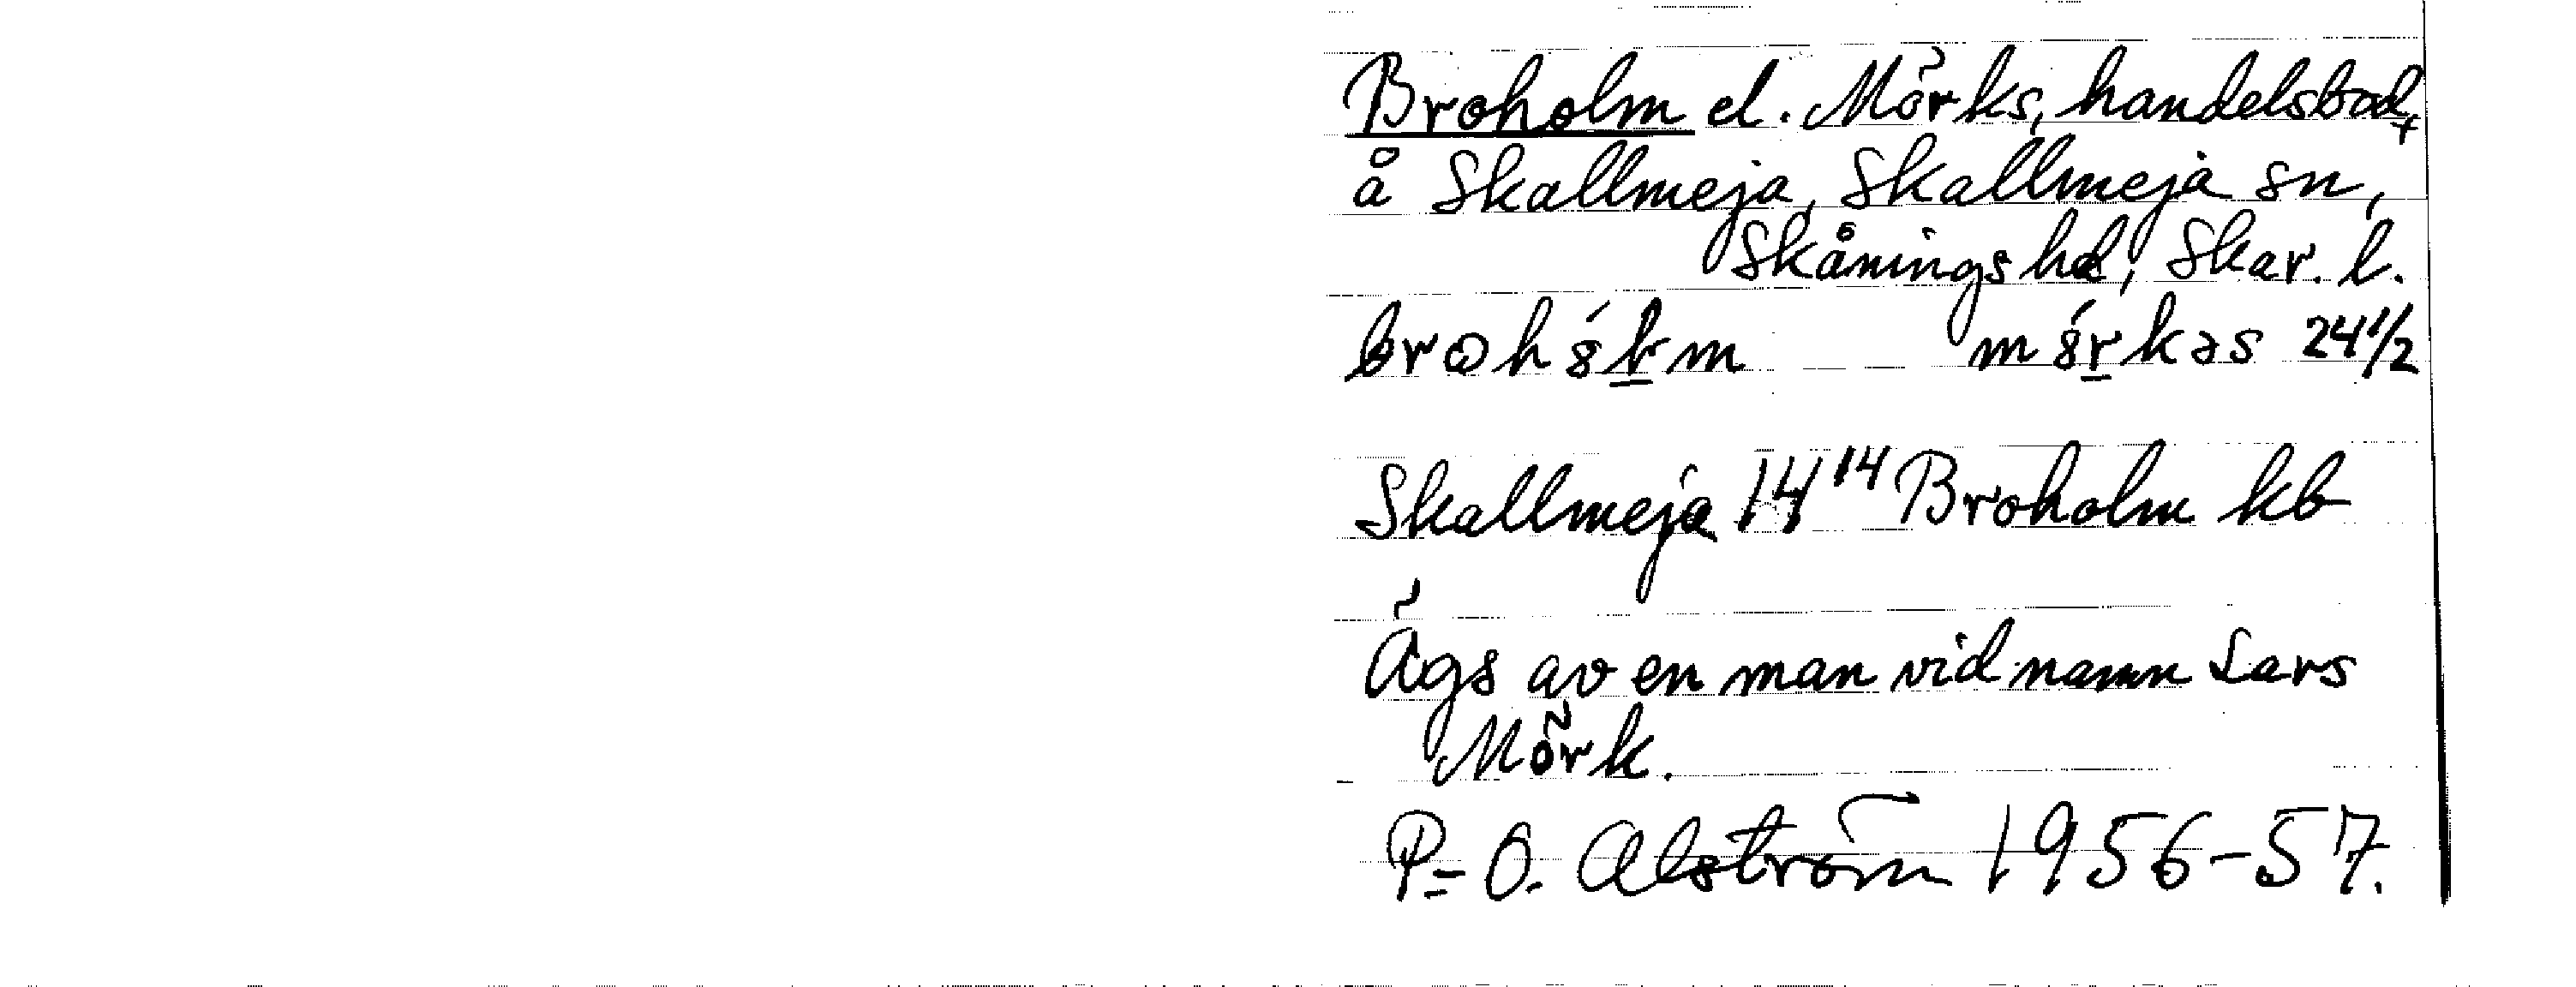 Broholm el. Mörks, handelsbod,
å Skallmeja, Skallmeja sn,
Skånings hd, Skar. l.
24 1/2
Skallmeja 14¹⁴ Broholm kb
Ägs av en man vid namn Lars
Mörk.
P-O. Alström 1956-57.